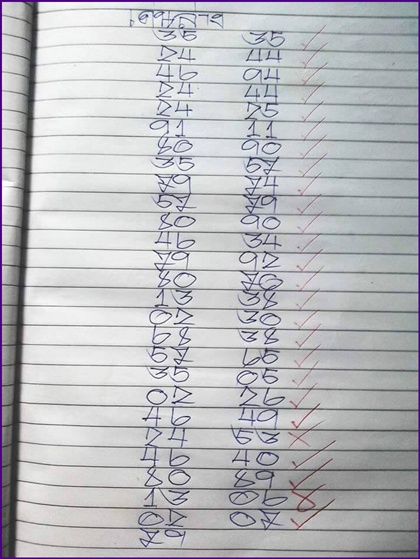 35 35
24 44
46 94
24 44
24 25
91 11
80 90
35 57
79 74
57 79
80 90
46 34
79 92
80 70
13 38
02 30
68 38
57 65
35 05
02 26
46 49
24 53
46 40
80 89
13 06
02 07
79